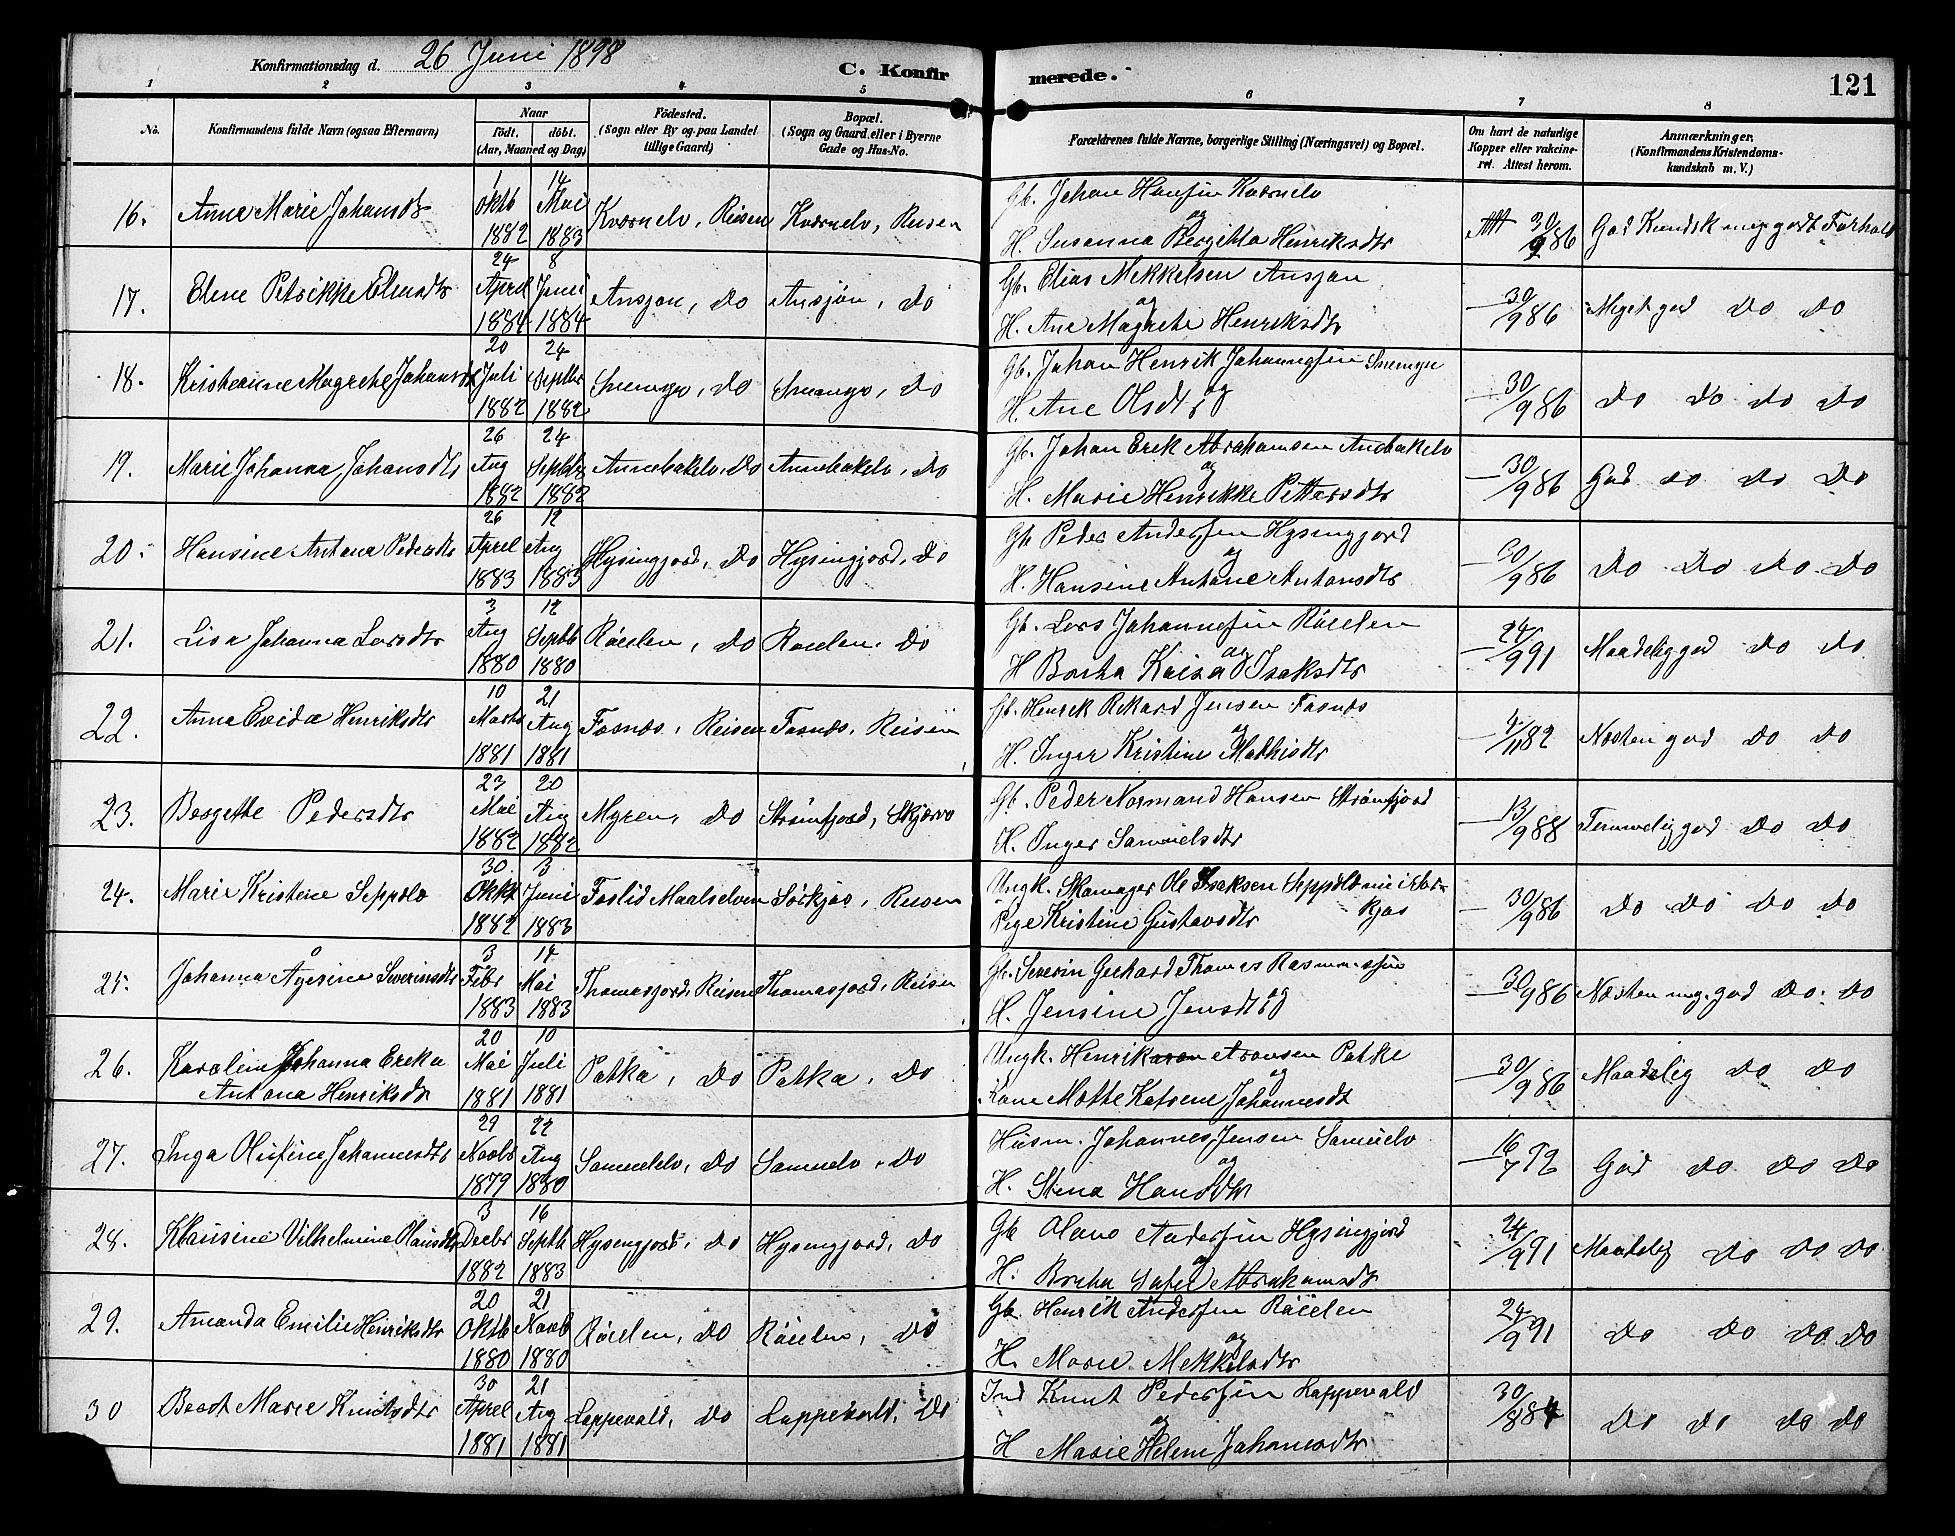 Konfirmationsdag d. 26 Juni 1898
C. Konfirmerede.
121
1 2 3 4 5 6 7 8
No.
Konfirmandens fulde Navn (ogsaa Efternavn)
Naar
födt. döbt.
(Aar, Maaned og Dag)
Födested.
(Sogn eller By og paa Landet
tillige Gaard)
Bopæl.
(Sogn og Gaard, eller i Byerne
Gade og Hus-No.
Forældrenes fulde Navne, borgerlige Stilling (Næringsvei) og Bopæl.
Om havt de naturlige
Kopper eller vakcine-
ret. Attest herom.
Anmærkninger.
(Konfirmandens Kristendoms-
kundskab m. V.)
16. Anne Marie Johansdtr 1 Oktb 1882 14 Mai 1883 Kvernelv, Reisen Kvernelv, Reisen
Gb. Johan Hansen Kvernelv
og
H. Susanna Bergitta Henriksdtr
Att 30/9 86 God Kundsk meg godt Forhold
17. Elene Petrikke Eliasdtr 24 April 1884 8 Juni 1884 Ansjøn, Do Ansjøn, Do
Gb. Elias Mekkelsen Ansjøn
og
H. Ane Magrete Henriksdtr
30/9 86 Meget god Do Do
18. Kristeanne Magrethe Johansdtr 20 Juli 1882 24 Septbr 1882 Do Do
Gb. Johan Henrik Johannesen
og
H. Ane Olsdtr
30/9 86 Do Do Do Do
19. Marie Johanna Johansdtr 26 Aug 1882 24 Septbr 1882 Annebakelv, Do Annebakelv, Do
Gb. Johan Erek Abrahamsen Anebakelv
og
H. Marie Henrikke Pettersdtr
30/9 86 God Do Do Do
20. Hansine Antone Pedersdtr 26 April 1883 12 Aug 1883 Hysingjord, Do Hysingjord, Do
Gb Peder Andersen Hysingjord
og
H. Hansine Antone Antonsdtr
30/9 86 Do Do Do Do
21. Lisa Johanna Larsdtr 3 Aug 1880 12 Septb 1880 Röielen, Do Roielen, Do
Gb. Lars Johannesen Röielen
og
H Bertha Kaisa Isaksdtr
24/9 91 Maadelig god Do Do
22. Anna Henriksdtr 10 Marts 1881 21 Aug 1881 Fosnæs, Reisen Fosnæs, Reisen
Gb. Henrik Rikard Jensen Fosnæs
og
H. Inger Kristine Mathisdtr
/11 82 Næsten god Do Do
23. Bergethe Pedersdtr 23 Mai 1882 20 Aug 1882 Myren, Do Strømfjord, Skjærvø
Gb. Peder Normand Hansen Strømfjord
H. Inger Samuelsdtr
13/9 88 Temmelig god Do Do
24. Marie Kristine Seppelæ 30 Oktb 1882 3 Juni 1883 Foslid Maalselven Sørkjos, Reisen
Ungk. Skomager Ole Isaksen
Pige Kristine Gustavsdtr
30/9 86 Do Do Do Do
25. Johanna Ågesine Severinsdtr 3 Febr 1883 14 Mai 1883 Thomasjord, Reisen Thomasjord, Reisen
Gb. Severin Gerhard Thomes Rasmussen
og
H. Jensine Jensdtr
30/9 86 Næsten meg. god Do. Do
26. Karoline Johanna Ereka
Antona Henriksdtr 20 Mai 1881 10 Juli 1881 Potka, Do Potka, Do
Ungk. Henrik Aronsen Potke
og
Kone Mette Katrene Johannesdt
30/9 86 Maadelig Do Do
27. Inga Olufine Johannesdtr 29 Novbr 1879 22 Aug 1880 Samuelelv, Do Samuelv, Do
Husm. Johannes Jensen Samuelv
og
H. Stena Hansdtr
16/7 92 God Do Do Do
28. Klausine Vilhelmine Olausdtr 3 Decbr 1882 16 Septb 1883 Hysengjord, Do Hysengjord, Do
Gb Olaus Andersen Hysingjord
og
H. Abrahamsdtr
24/9 91 Maadelig Do Do Do
29. Amanda Emilie Henriksdtr 20 Oktb 1880 21 Novb 1880 Röielen, Do Röielen, Do
Gb. Henrik Andersen Röielen
og
H. Marie Mekkelsdtr
24/9 91 Do Do Do Do
30 Berit Marie Knutsdtr 30 April 1881 21 Aug 1881 Lappevold, Do Lappevold, Do
Ind Knut Pedersen Lappevold
og
H Marie Helene Johannesdtr
30/8 84 Do Do Do Do